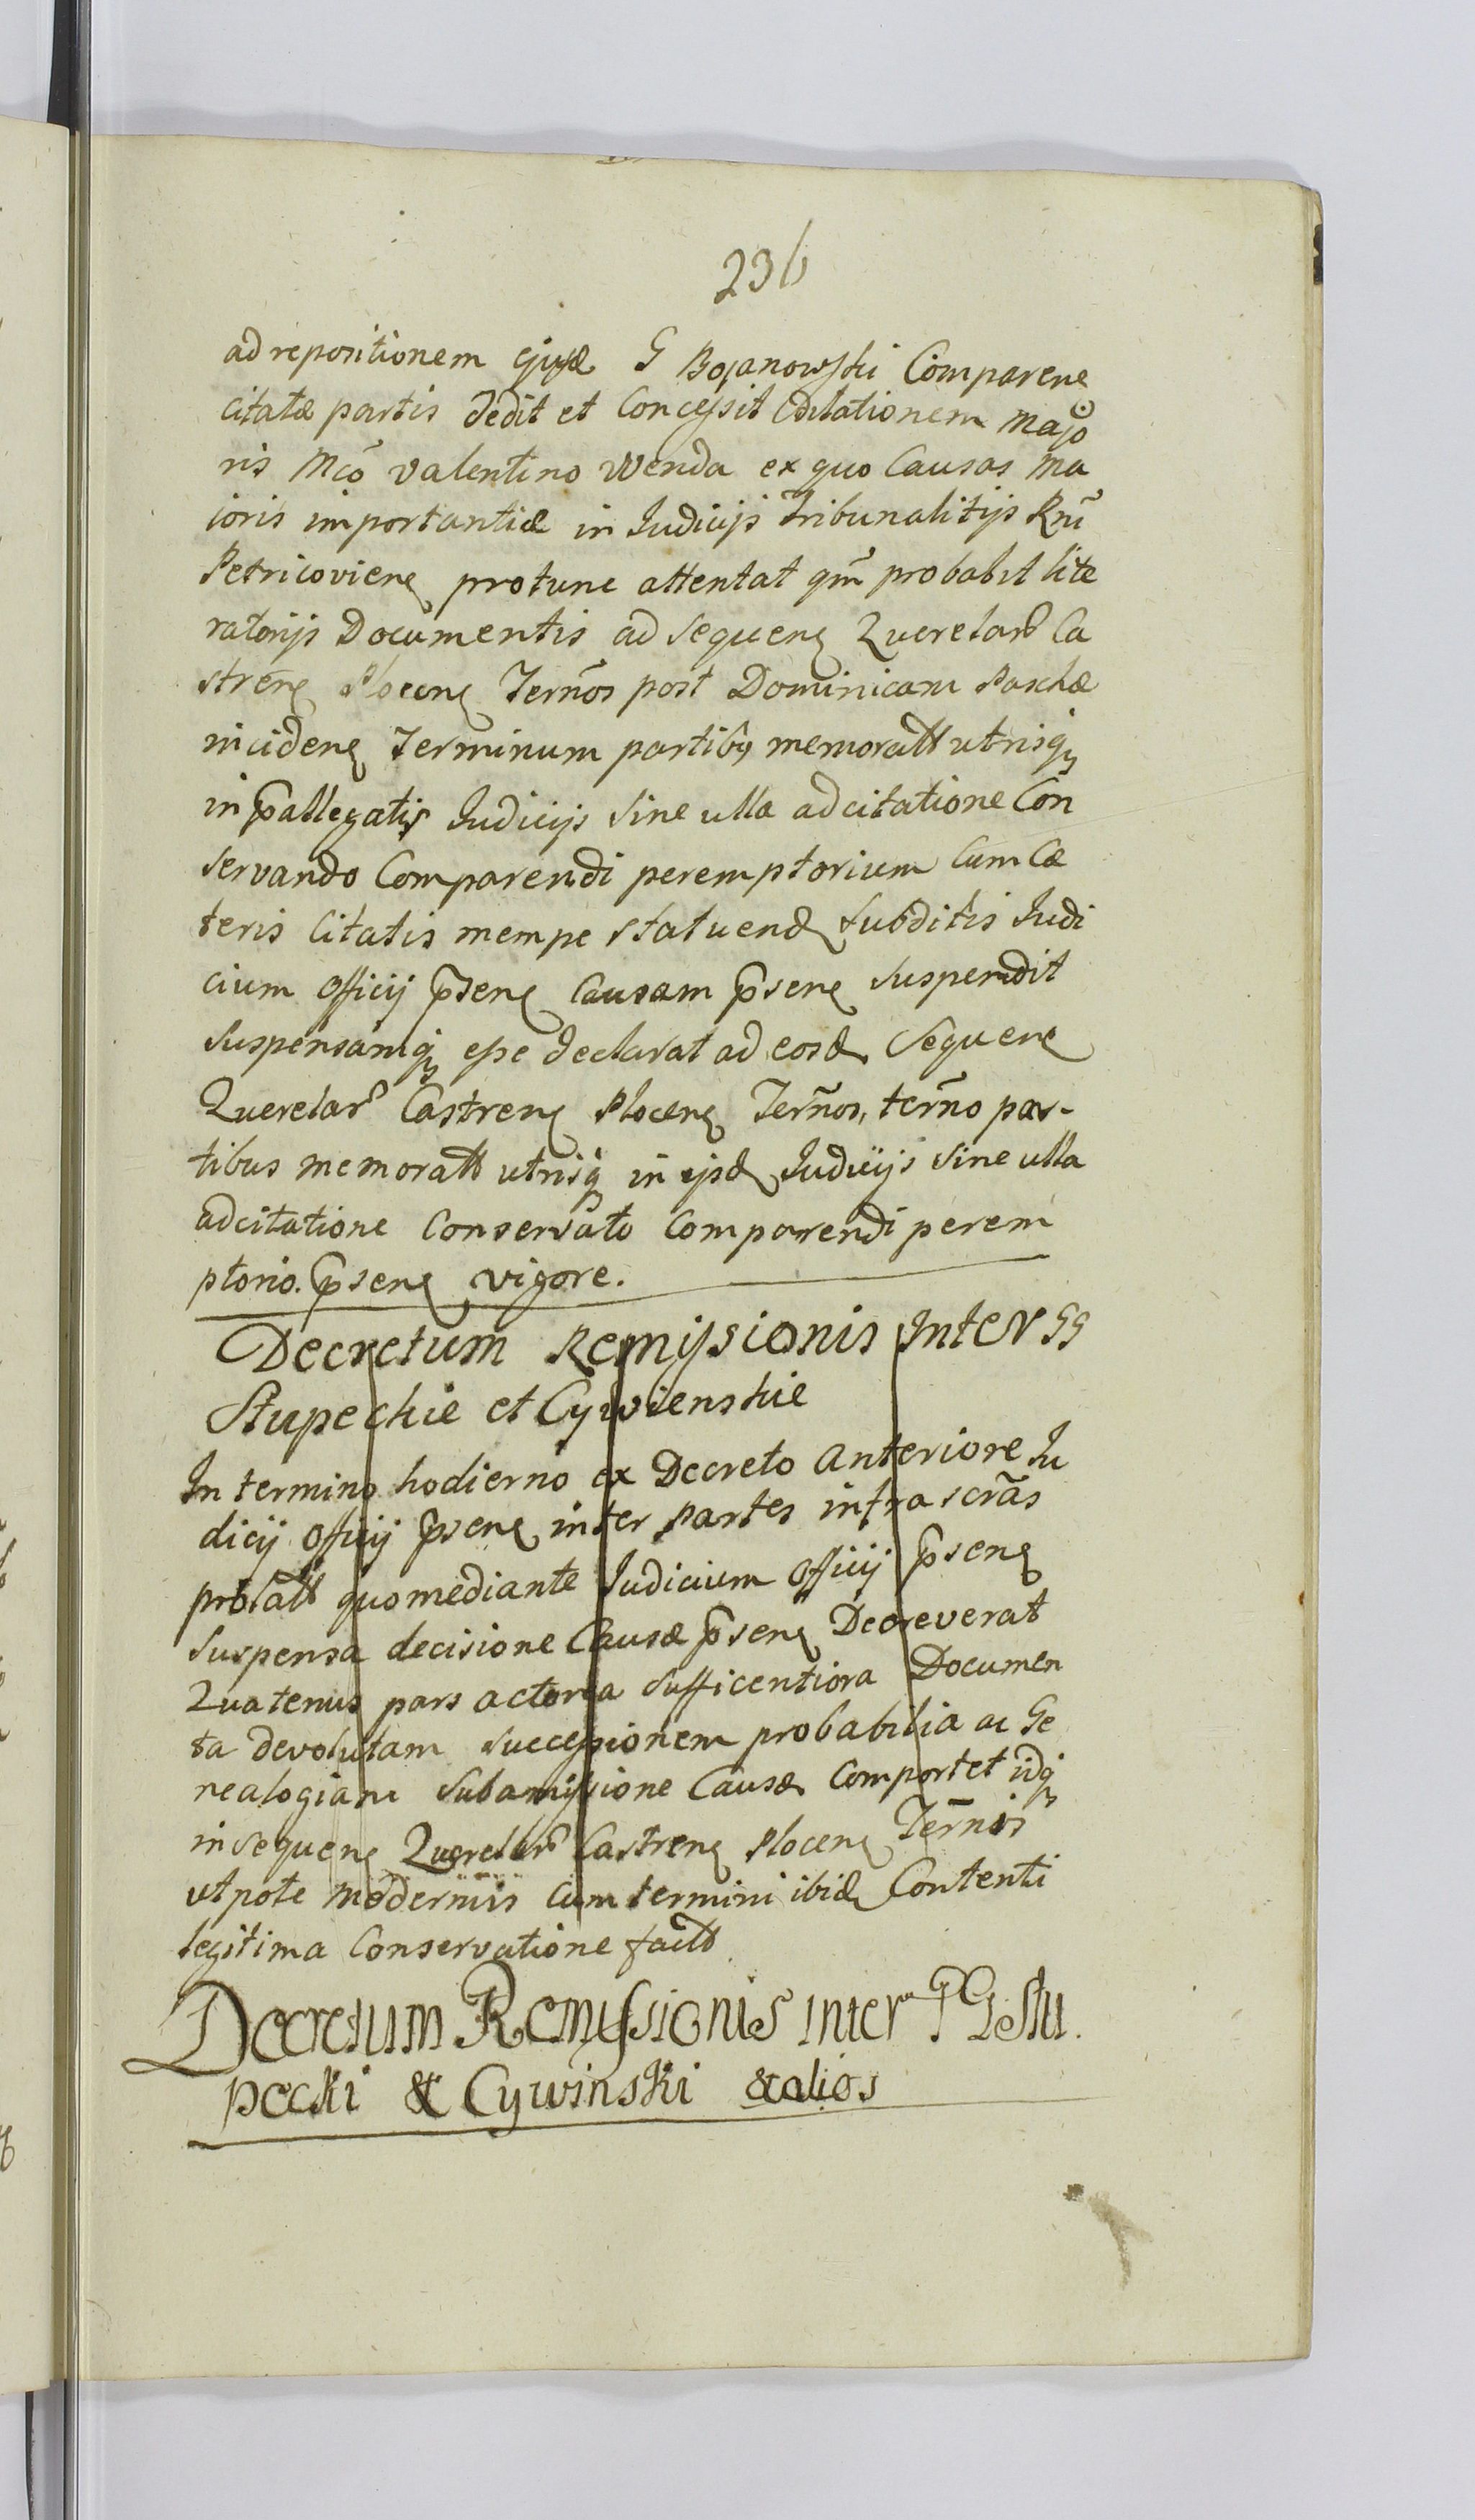 236
ad repositionem ejusd G Bojanowski Comparenę
citatæ partis dedit et Concessit Cdilationem Majo
ris Mcõ Valentino Wenda ex quo Causas ma
ioris importantiæ in Judicijs Tribunalitijs Rnĩ
Petricovienę protunc attentat qm̃ probabit lite
ratorijs Documentis ad Sequenę Querelarũ Ca
strenę Plocenę Terños post Dominicam Paschæ
incidenę Terminum partibꝫ memoratt utrisqꝫ
in p̃allegatis Judicijs Sine ulla adcitatione Con
servando Comparendi peremptorium Cum Cæ
teris Citatis mempe statuend subditis Judi
cium Officij p̃senę Causam p̃senę Suspendit
Suspensamqꝫ esse declarat ad eosd Sequenę
Querelarũ Castrenę Plocenę Terños, terño par-
tibus memoratt utrisqꝫ in ijsd Judicijs Sine ulla
adcitatione Conservato Comparendi perem
ptorio. p̃senę vigore.
Decretum Remissionis Inter GG
Stupeckie et Cywienskie
In termino hodierno ex Decreto Anteriore Ju
dicij Officij p̃senę inter Partes infra scrãs
prolatt quomediante Judicium Officij p̃senę
Suspensa decisione Causæ p̃senę Decreverat
Quatenus pars actorea Sufficentiora Documen
ta devolutam Successionem probabilia ac Ge
nealogiam Subamissione Causæ Comportet idqꝫ
in Sequenę Querelarũ Castrenę Plocenę Terñis
utpote modernis Cum termini ibid Contenti
legitima Conservatione factt
Decretum Remissionis inter GG Stu.
pecki & Cywinski & alios